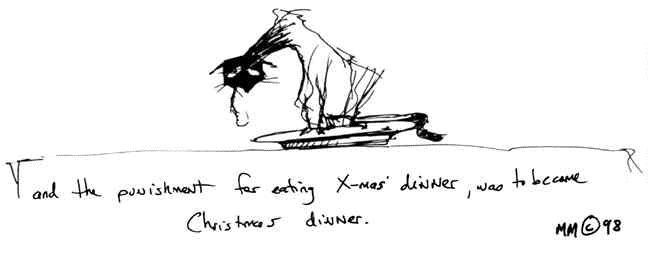 and the punishment for eating X-mas' dinner, was to become
Christmas dinner.
MM © 98